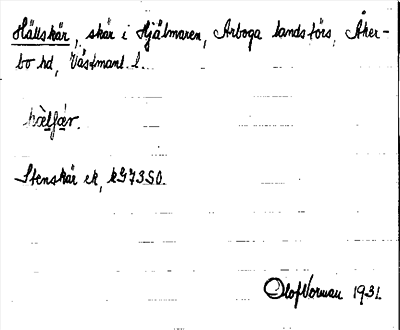 Hällskär, skär i Hjälmaren, Arboga landsförs, Åker-
bo hd, Västmanl. l.
hæ̀lʃæ̀r.
Stenskär ek, kG73SO.
Olof Norman 1931.